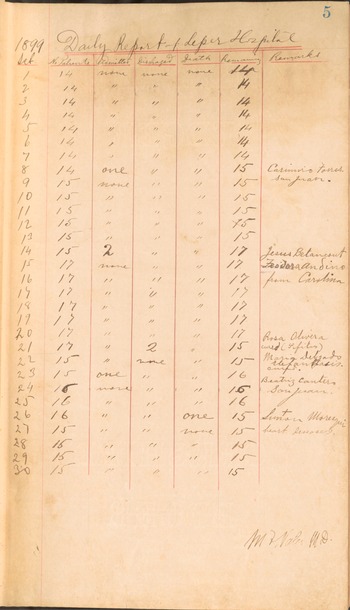 5
1899 Daily Report of Leper Hospital
No Patients Admitted Discharged Death Remaining Remarks
1 14 none none none 14
2 14 " " " 14
3 14 " " " 14
4 14 " " " 14
5 14 " " " 14
6 14 " " " 14
7 14 " " " 14
8 14 one " " 15 Casimiro
9 15 none " " 15 San Juan.
10 15 " " " 15
11 15 " " " 15
12 15 " " " 15
13 15 " " " 15
14 15 2 " " 17 Jesus Betancourt
15 17 none " " 17 Teodora Andino
16 17 " " " 17 from Carolina
17 17 " " " 17
18 17 " " " 17
19 17 " " " 17
20 17 " " " 17 Rosa Olivera
21 17 " 2 " 15
22 15 " none " 15 Maria Delgado
23 15 one " " 16
24 16 none " " 16 Beatriz
25 16 " " " 16 San Juan.
26 16 " " one 15 Simon
27 15 " " none 15 heart
28 15 " " " 15
29 15 " " " 15
30 15 " " " 15
M.D.